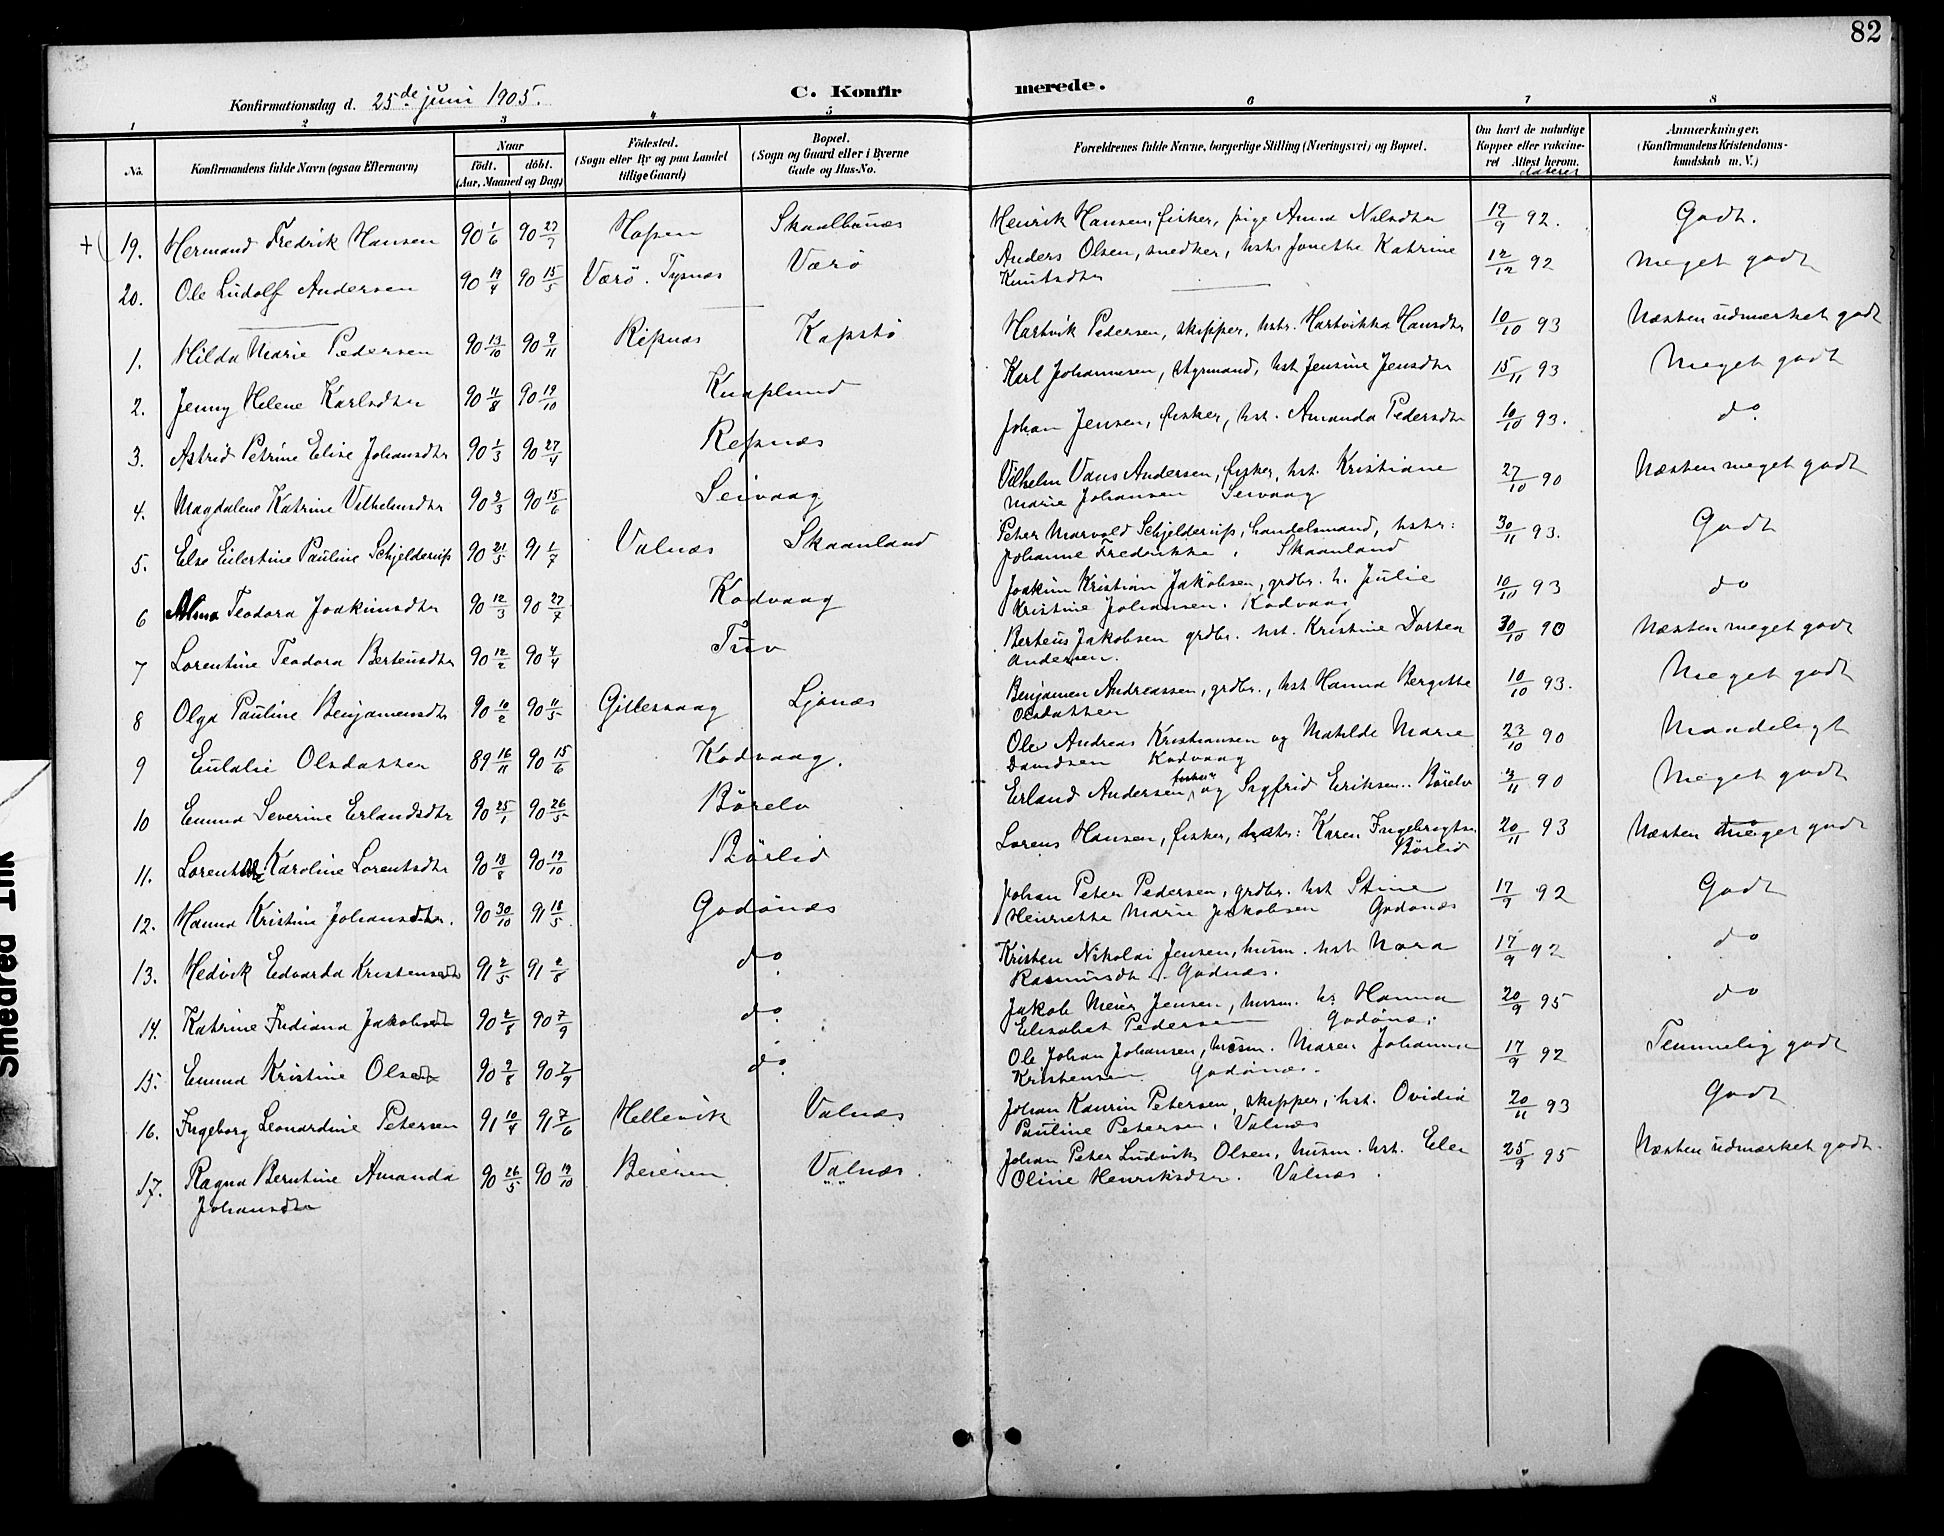 82
Konfirmationsdag d. 25de juni 1905.
C. Konfirmerede.
1 2 3 4 5 6 7 8
No.
Konfirmandens fulde Navn (ogsaa Efternavn)
Naar
Født. døbt.
(Aar, Maaned og Dag)
Fødested.
(Sogn eller By og paa Landet
tillige Gaard)
Bopæl.
(Sogn og Gaard eller i Byerne
Gade og Hus-No.
Forældrenes fulde Navne, borgerlige Stilling (Næringsvei) og Bopæl.
Om havt de naturlige
Kopper eller vakcine-
ret Attest herom.
dateret
Anmærkninger.
(Konfirmandens Kristendoms-
kundskab m. V.)
+( 19. Hermand Fredrik Hansen 90 1/6 90 27/7 Hopen Skaalbunes Henrik Hansen, fisker, pige Anna Nilsdtr 19/9 92. Godt.
20. Ole Ludolf Andersen 90 19/4 90 15/5 Værø. Tysnes Værø Anders Olsen, snedker, hstr Jonette Katrine 12/12 92 Meget godt
Knutsdtr
1. Hilda Marie Pedersen 90 13/10 90 9/11 Ripnæs Kapstø Hartvik Pedersen, skipper, hstr. Hartvikka Hansdtr 10/10 93 Næsten udmærket godt
2. Jenny Helene Karlsdtr 90 11/8 90 19/10 Knaplund Karl Johannesen, styrmand, hst Jensine Jensdtr 15/11 93 Meget godt
3. Astrid Petrine Elise Johansdtr 90 1/3 90 27/4 Repnæs Johan Jensen, fisker, hst. Amanda Pedersdtr 10/10 93. do
4. Magdalene Katrine Vilhelmsdtr 90 2/3 90 15/6 Seivaag Vilhelm Vans Andersen, fisker, hst. Kristiane 27/10 90 Næsten meget godt
Marie Johansen Seivaag
5. Else Eilertine Pauline Schjelderup 90 21/5 91 1/7 Valnæs Skaanland Peter Marvold Schjelderup, handelsmand, hstr: 30/11 93. Godt
Johanne Fredrikke, Skaanland
6 Alma Teodora Joakimsdtr 90 12/3 90 27/7 Kodvaag Joakim Kristian Jakobsen, grdbr. h. Julie 10/10 93 do
Kristine Johansen. Kodvaag
7 Lorentine Teodora Berteusdtr 90 12/2 90 4/4 Tuv Berteus Jakobsen grdbr. hst. Kristine Dortea 30/10 90 Næsten meget godt
Andersen.
8 Olga Pauline Benjamensdtr 90 10/2 90 11/5 Gillesvaag Ljønæs Benjamen Andreassen, grdbr., hst Hanna Bergitte 10/10 93. Meget godt
Olsdatter
9 Eulalie Olsdatter 89 16/11 90 15/6 Kodvaag. Ole Andreas Kristiansen og Matilde Marie 23/10 90 Maadeligt
Davidsen Kodvaag
10 Emma Severine Erlandsdtr 90 25/1 90 26/5 Børelv Erland Andersen, fisker og Sigfrid Eriksen.. Børelv 3/11 90 Meget godt
11. Karoline Lorentsdtr 90 18/8 90 19/10 Børlid Lorens Hansen, fisker, hstr: Karen Ingebrigtsn 20/11 93 Næsten meget godt
Børlid
12. Hanna Kristine Johansdtr. 90 30/10 91 18/5 Godønes Johan Peter Pedersen, grdbr. hst Stine 17/9 92 Godt
Henriette Marie Jakobsen Godønes
13. Hedvik Edvarda Kristensdtr 91 2/5 91 2/8 do Kristen Nikolai Jensen, husm. hst Nora 17/9 92 do
Rasmusdtr. Godnæs.
14. Katrine Frediana Jakobsdtr 90 2/8 90 7/9 do Jakob Meier Jensen, husm. hs Hanna 20/9 95 do
Elisabet Pedersen Godønes
15. Emma Kristine Olsdtr 90 2/8 90 7/9 do Ole Johan Johansen, husm. Maren Johanna 17/9 92 Temmelig godt
Kristensen. Godønes.
16. Ingeborg Leonardine Petersen 91 10/4 91 7/6 Hellevik Valnæs Johan Kaurin Petersen, skipper, hst. Ovidia 20/11 93 Godt
Pauline Petersen, Valnæs
17. Ragna Berntine Amanda 90 26/5 90 19/10 Beieren Valnæs. Johan Peter Ludvik Olsen, husm. hst. Elen 25/9 95 Næsten udmærket godt.
Johansdtr Oline Henriksdtr. Valnæs.
Smedred Ink